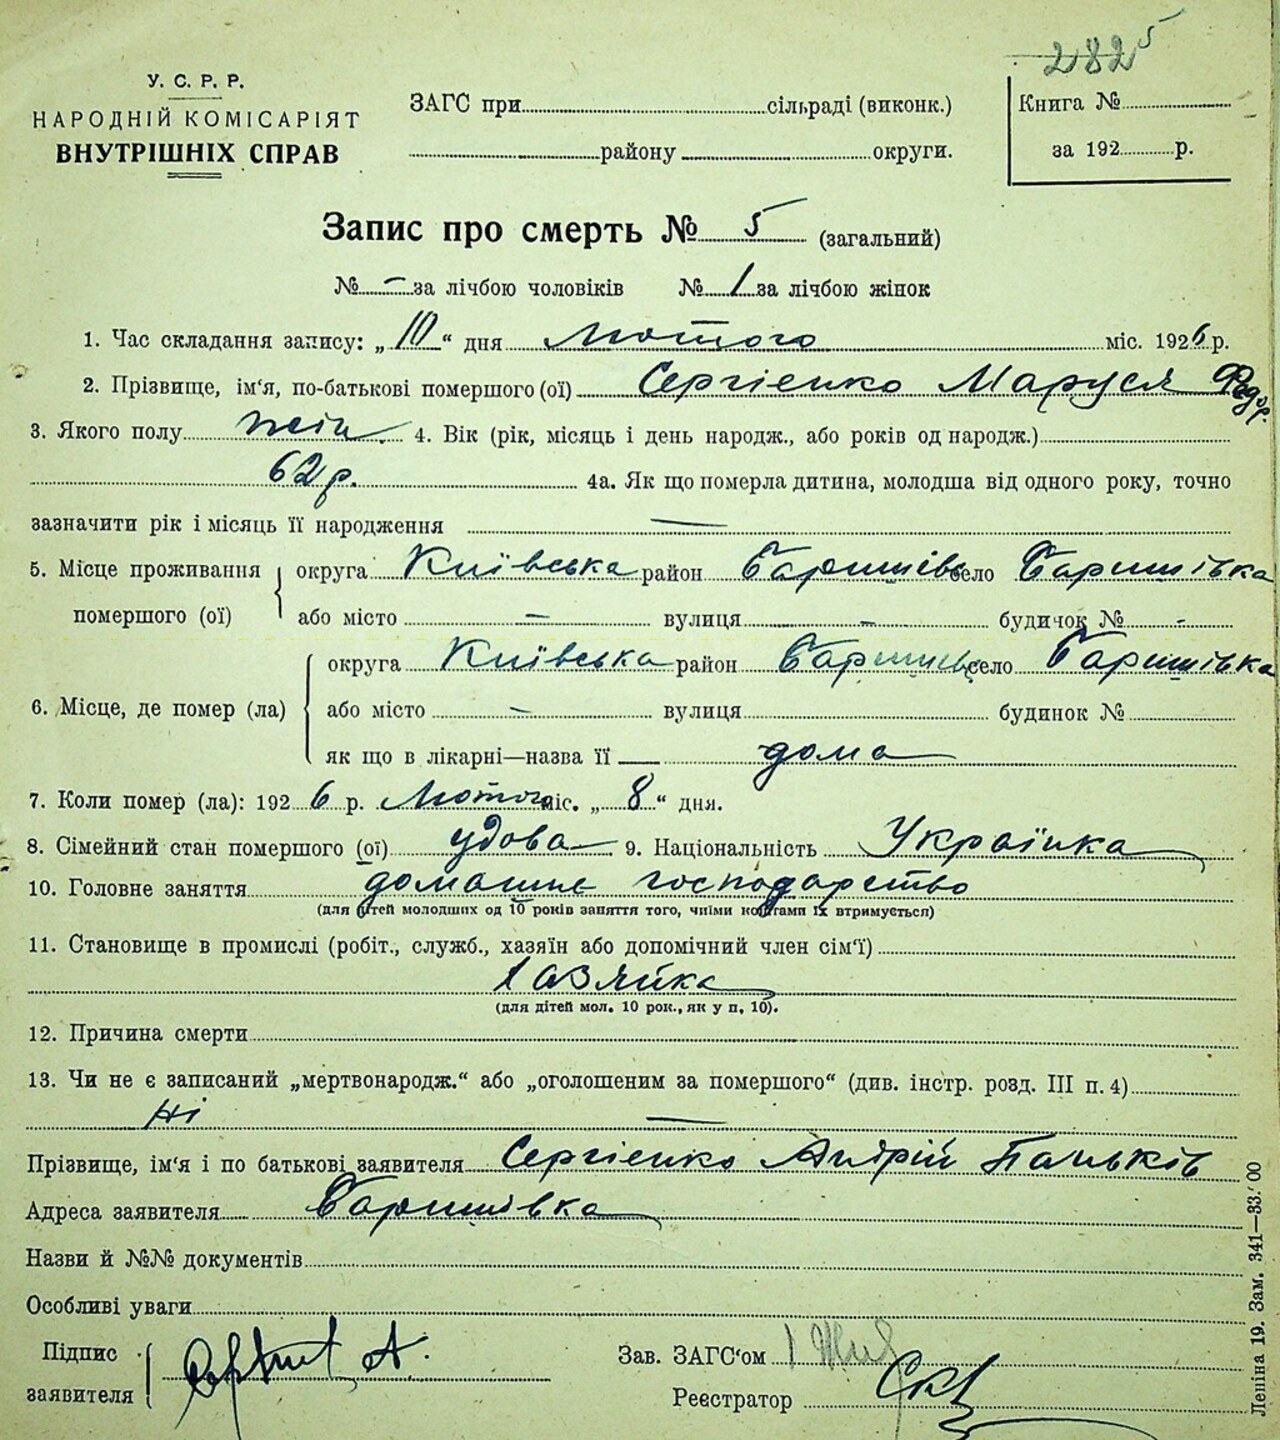 282 5
У. С. Р. Р.
НАРОДНІЙ КОМІСАРІЯТ
ВНУТРІШНІХ СПРАВ
ЗАГС при сільраді (виконк.)
району округи.
Книга №
за 192 р.
Запис про смерть № 5 (загальний)
№ - за лічбою чоловіків № 1 за лічбою жінок
1. Час складання запису: „10“ дня Лютого міс. 1926 р.
2. Прізвище, ім‘я, по-батькові помершого (ої) Сергієнко Маруся Федор.
3. Якого полу жін. 4. Вік (рік, місяць і день народж., або років од народж.)
62 р. 4а. Як що померла дитина, молодша від одного року, точно
зазначити рік і місяць її народження —
5. Місце проживання помершого (ої) округа Київська район Баришівс село Баришівка
або місто — вулиця - будинок № -
6. Місце, де помер (ла) округа Київська район Баришівс село Баришівка
або місто — вулиця будинок №
як що в лікарні—назва її — дома
7. Коли помер (ла): 1926 р. Лютого міс. „8“ дня.
8. Сімейний стан помершого (ої) удова 9. Національність Українка
10. Головне заняття домашнє господарство
(для дітей молодших од 10 років заняття того, чиїми коштами їх втримується)
11. Становище в промислі (робіт., служб., хазяїн або допомічний член сім‘ї)
Хазяйка
(для дітей мол. 10 рок., як у п. 10).
12. Причина смерти
13. Чи не є записаний „мертвонародж.“ або „оголошеним за помершого“ (див. інстр. розд. III п. 4)
Ні —
Прізвище, ім‘я і по батькові заявителя Сергієнко Андрій Паньків
Адреса заявителя Баришівка
Назви й №№ документів
Особливі уваги
Підпис
заявителя
А.
Зав. ЗАГС‘ом
Реєстратор
Леніна 19. Зам. 341—33.00